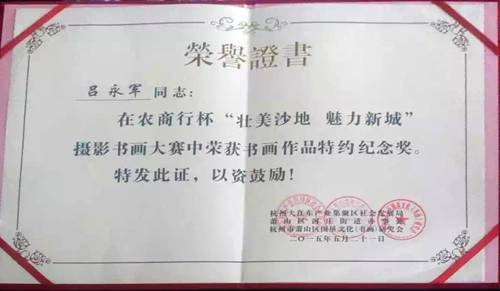 榮譽證書
吕永军 同志：
在农商行杯“壮美沙地 魅力新城”
摄影书画大赛中荣获书画作品特约纪念奖。
特发此证，以资鼓励！
杭州大江东产业集聚区社会发展局
萧山区河庄街道办事处
杭州市萧山区围垦文化(书画)研究会
二〇一五年五月二十一日